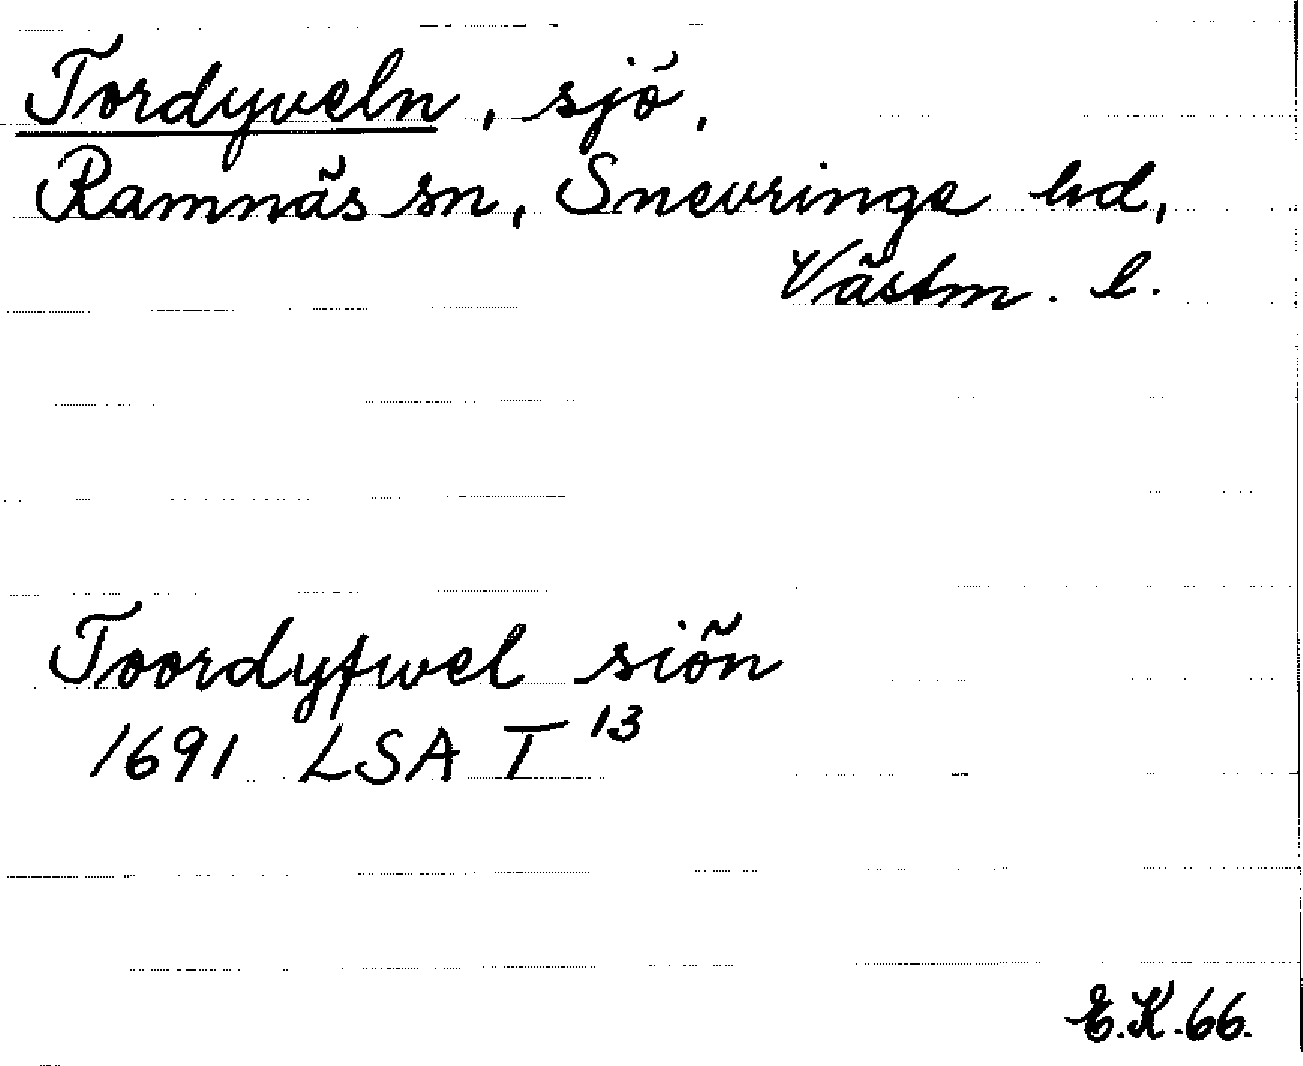 Tordyveln, sjö,
Ramnäs sn, Snevringe hd,
Västm. l.
Toordyfwel siön
1691 LSA T 13
E.K.66.